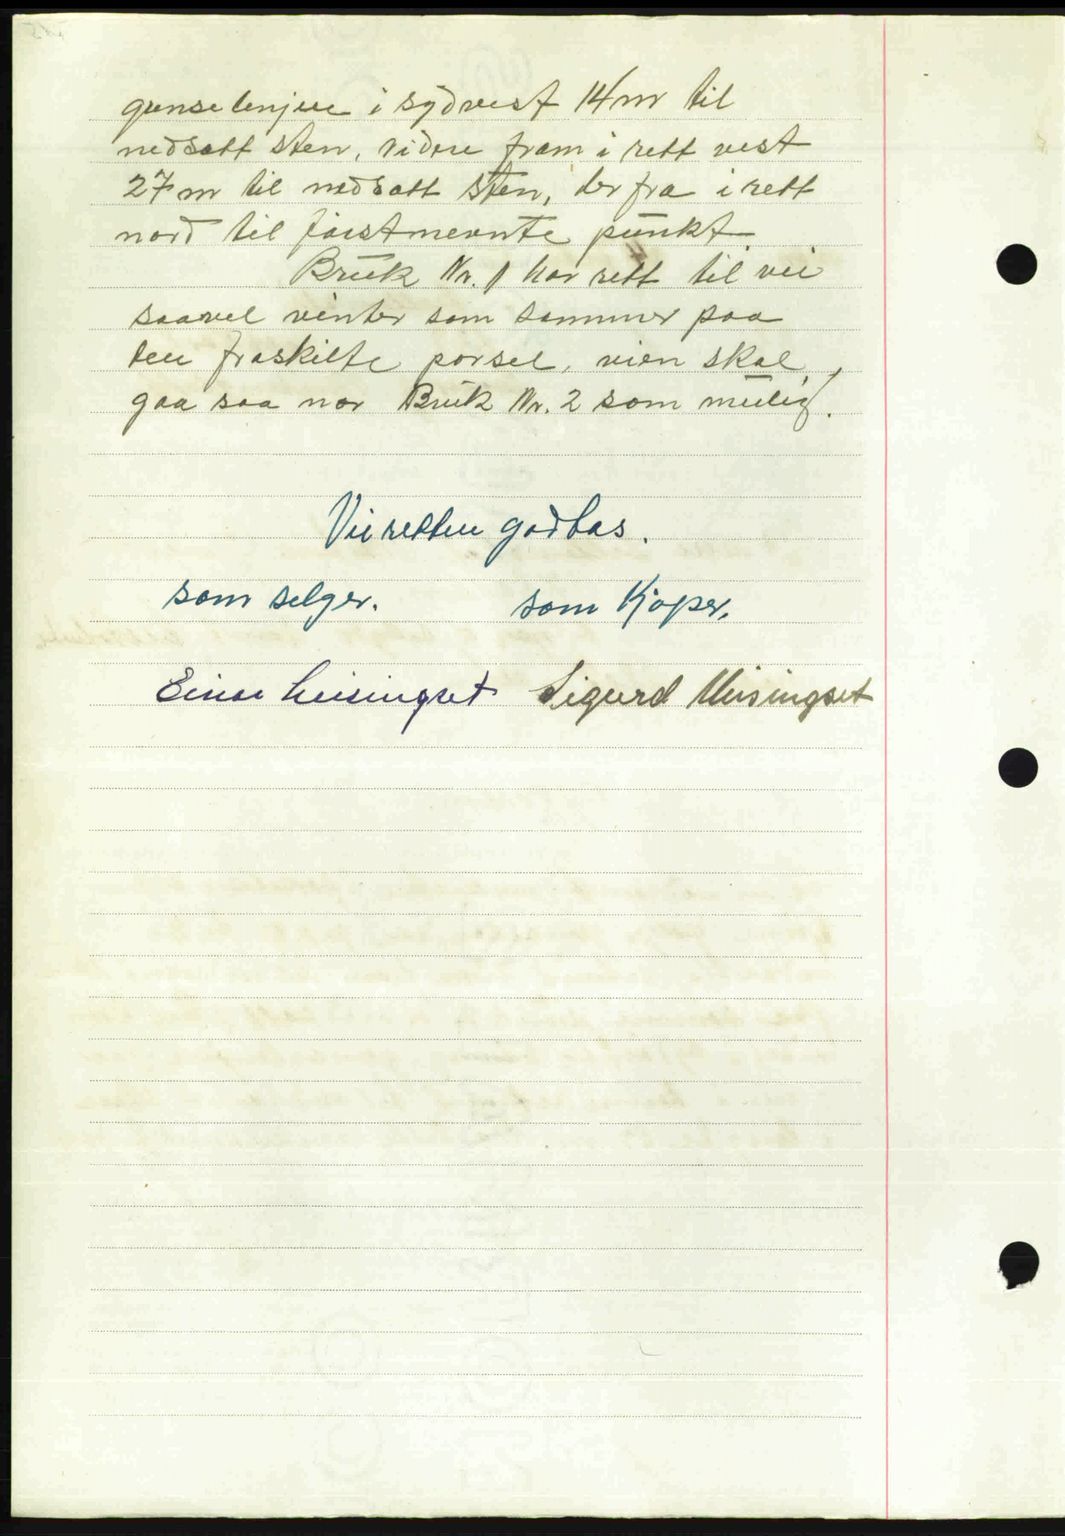 grenselinjue i sydvest 14 m til
nedsatt sten, vidre fram i rett vest
27 m til nedsatt sten, der fra i rett
nord til førstnevnte punkt.
Bruk Nr. 1 har rett til vei
saavel vinter som sommer paa
den fraskilte parsel, vien skal
gaa saa nær Bruk Nr. 2 som mulig.
Veiretten godtas.
som selger. som Kjøper,
Einar Meisingset Sigurd Meisingset